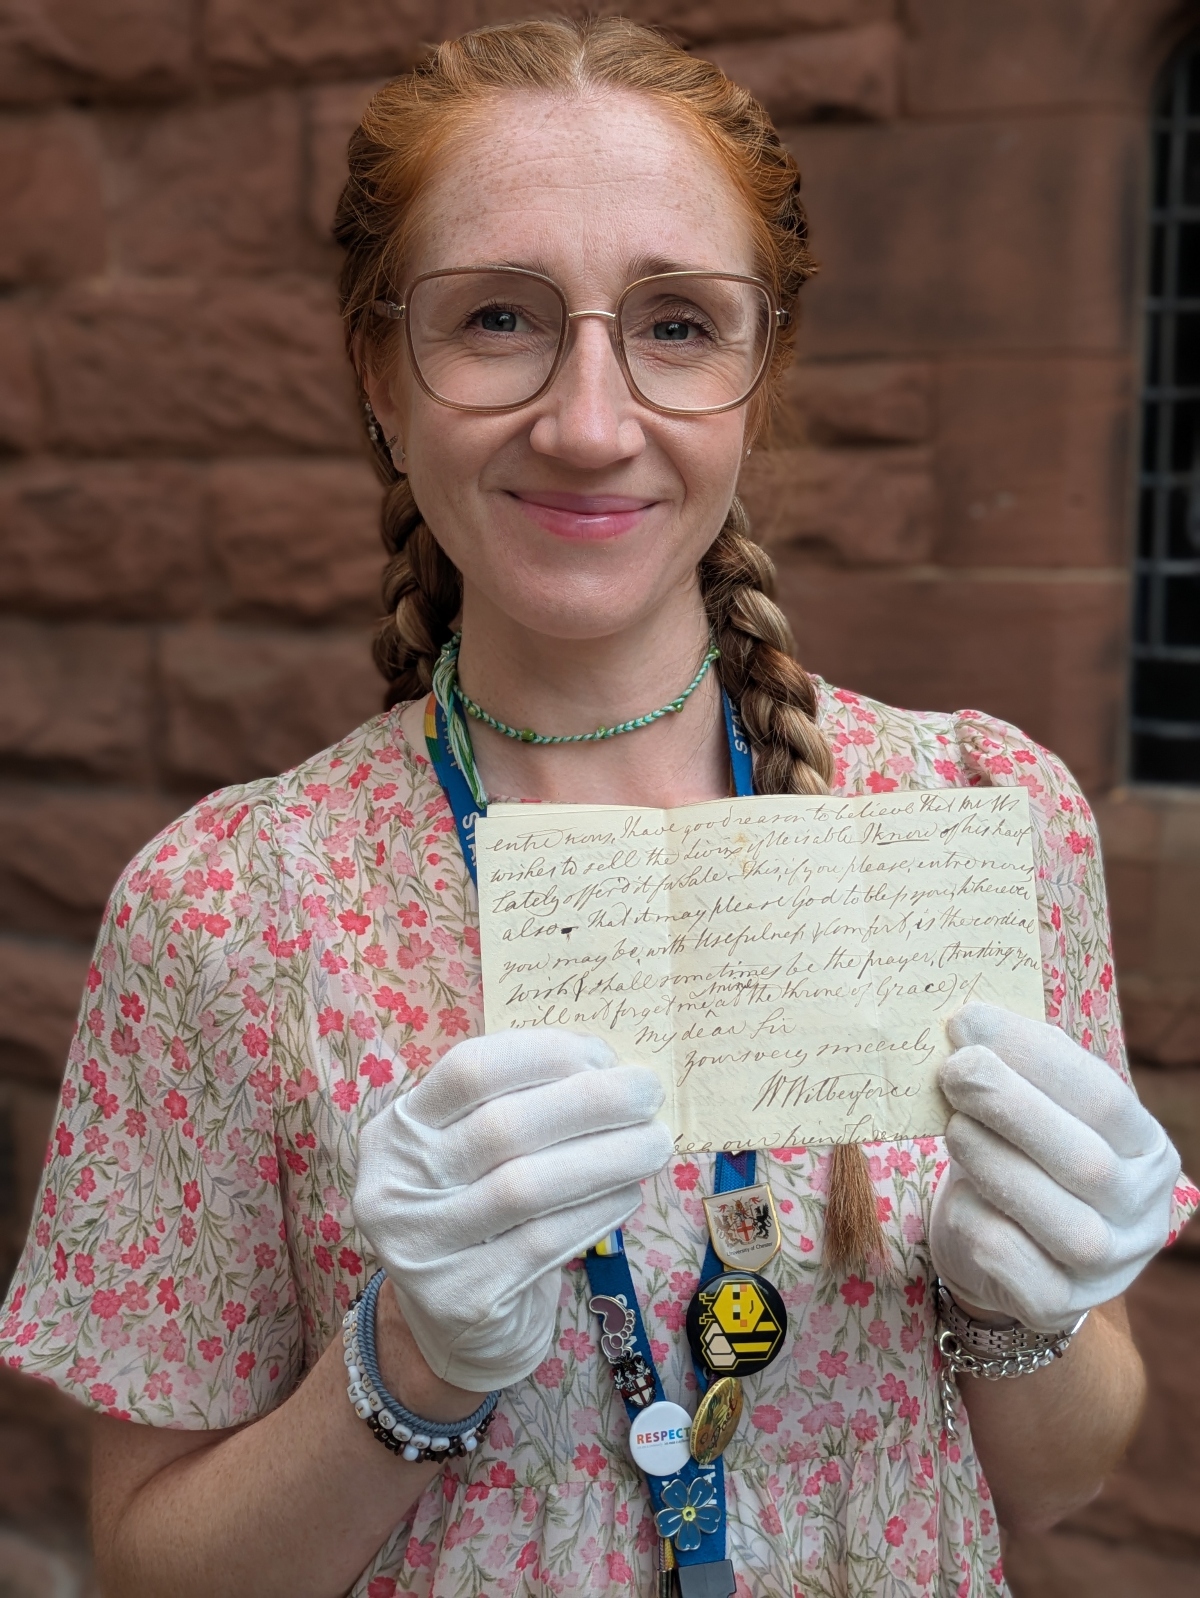 entre nous, I have good reason to believe that Mr Ws
wishes to sell the Living if he is able I know of his havg
Lately offer'd it for Sale. This, if you please, entre nous
also - That it may please God to bless you, wherever
you may be, with Usefulness & Comfort, is the cordial
wish & shall sometimes be the prayer, (trusting you
will not forget me at the throne of Grace) of
mine
My dear Sir
yours very sincerely
W Wilberforce
our friend
STAFF
University of Chester
RESPECT